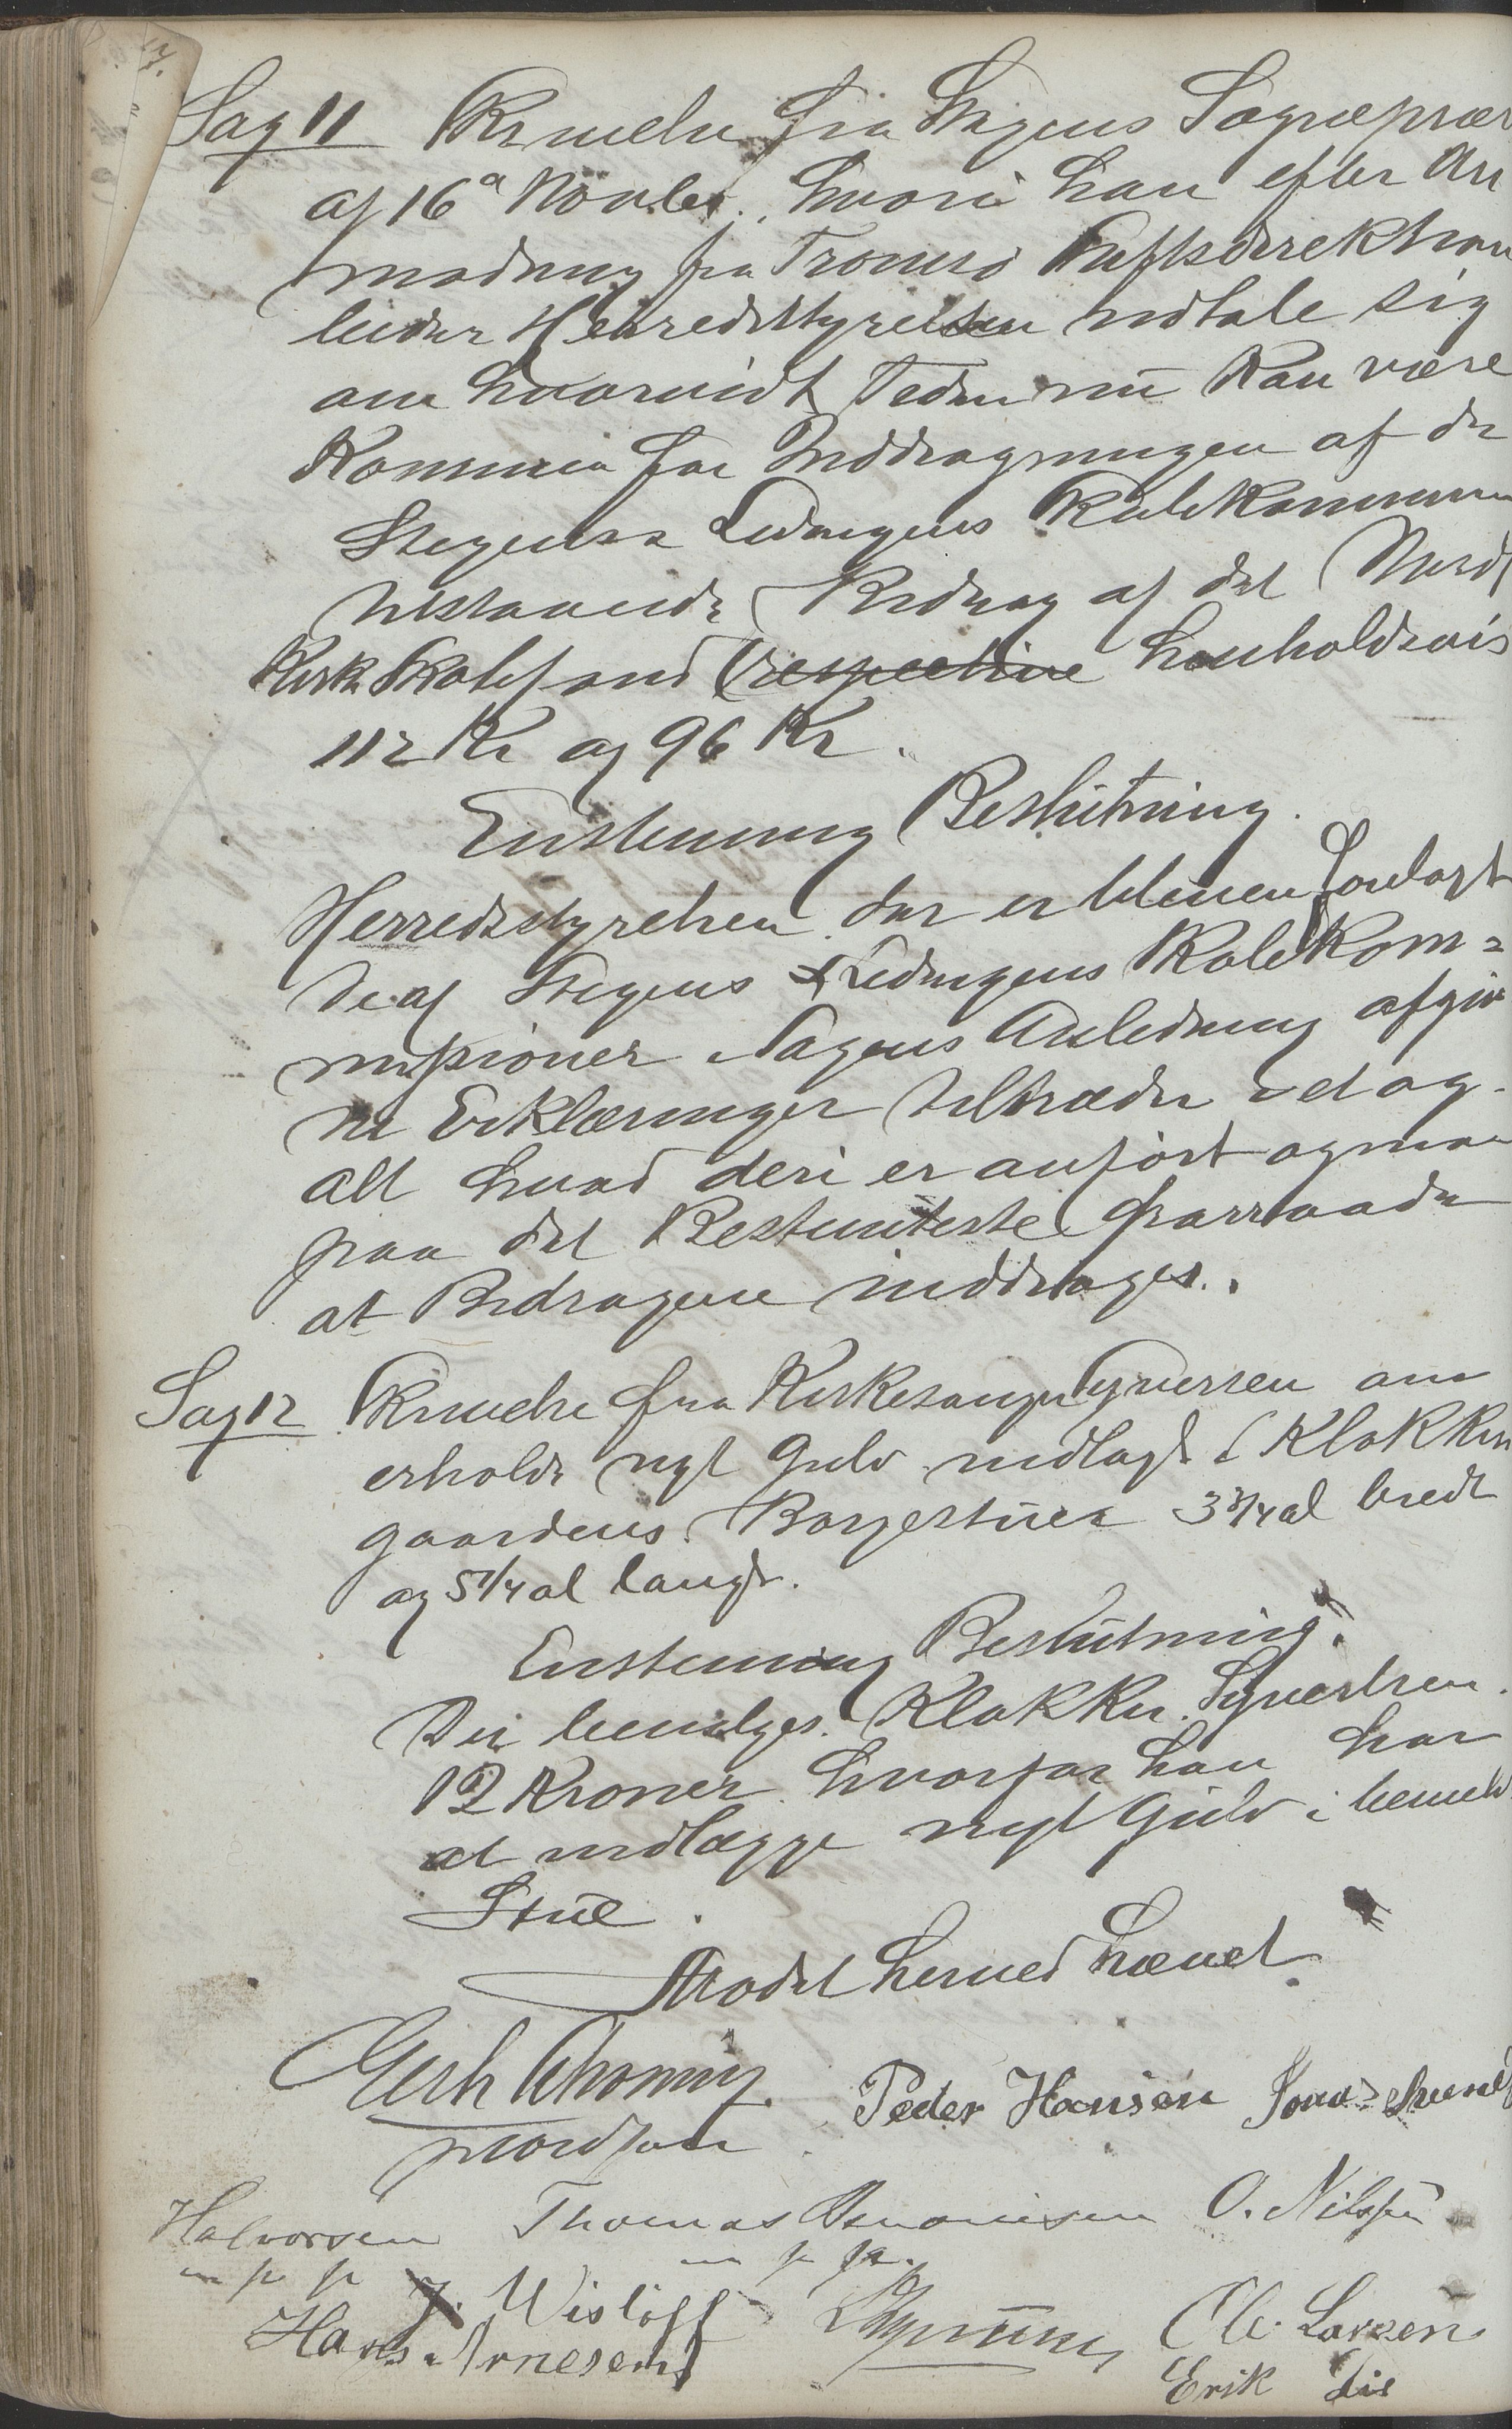 Sag 11 Skrivelse fra Stegens Sognepræs
af 16de Novbr., hvori han efter An
modning fra Tromsø Stiftsdirektion
beder Herredstyrelsen udtale sig
om hvorvidt Tiden nu kan være
kommen for Inddragningen af de
Stegens & Ledingens Skolekommune
tilstaaende Bidrag af det Nordl
Kirke & Skolefond (respective henholdsvis
112 Kr og 96 Kr.
Enstemmig Beslutning.
Herredsstyrelsen der er bleven forelagt
de af Stegens & Ledingens Skolekom=
missioner i Sagens Anledning afgiv
ne Erklæringer tiltræder i et og
alt hvad deri er anført og maa
paa det Bestemteste fraraade
at Bidragene inddrages.
Sag 12 Skrivelse fra Kirkesanger Syversen om
erholde nyt Gulv nedlagt i Klokker
gaardens Borgestue 3 3/4 al bredt
og 5 1/4 al langt.
Enstemmig Beslutning.
Der bevilges Klokker Syvertsen
12 Kroner hvorfor han har
at nedlægge nyt Gulv i bemeld
Stue.
Mødet hermed hævet
Gerh Schøning
Peder Hansen
Halvorsen Thomas O. Nilssen
m p p m p p.
J. Wisløff Ole Larsen
Hans Arnesen
Erik